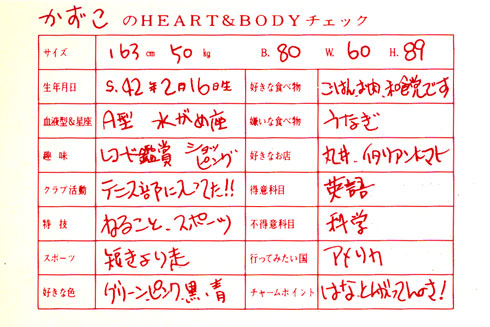 かずこ のHEART&BODYチェック
サイズ 163cm 50kg B. 80 W. 60 H. 89
生年月日 S.42年2月16日生 好きな食べ物 ごはん、お肉、和食党です
血液型&星座 A型 水がめ座 嫌いな食べ物 うなぎ
趣味 レコード鑑賞 ショッピング 好きなお店 丸井、イタリアントマト
クラブ活動 テニス部に入ってた!! 得意科目 英語
特技 ねること、スポーツ 不得意科目 科学
スポーツ 短きょり走 行ってみたい国 アメリカ
好きな色 グリーン、ピンク、黒、青 チャームポイント はな、とんがってんのさ!